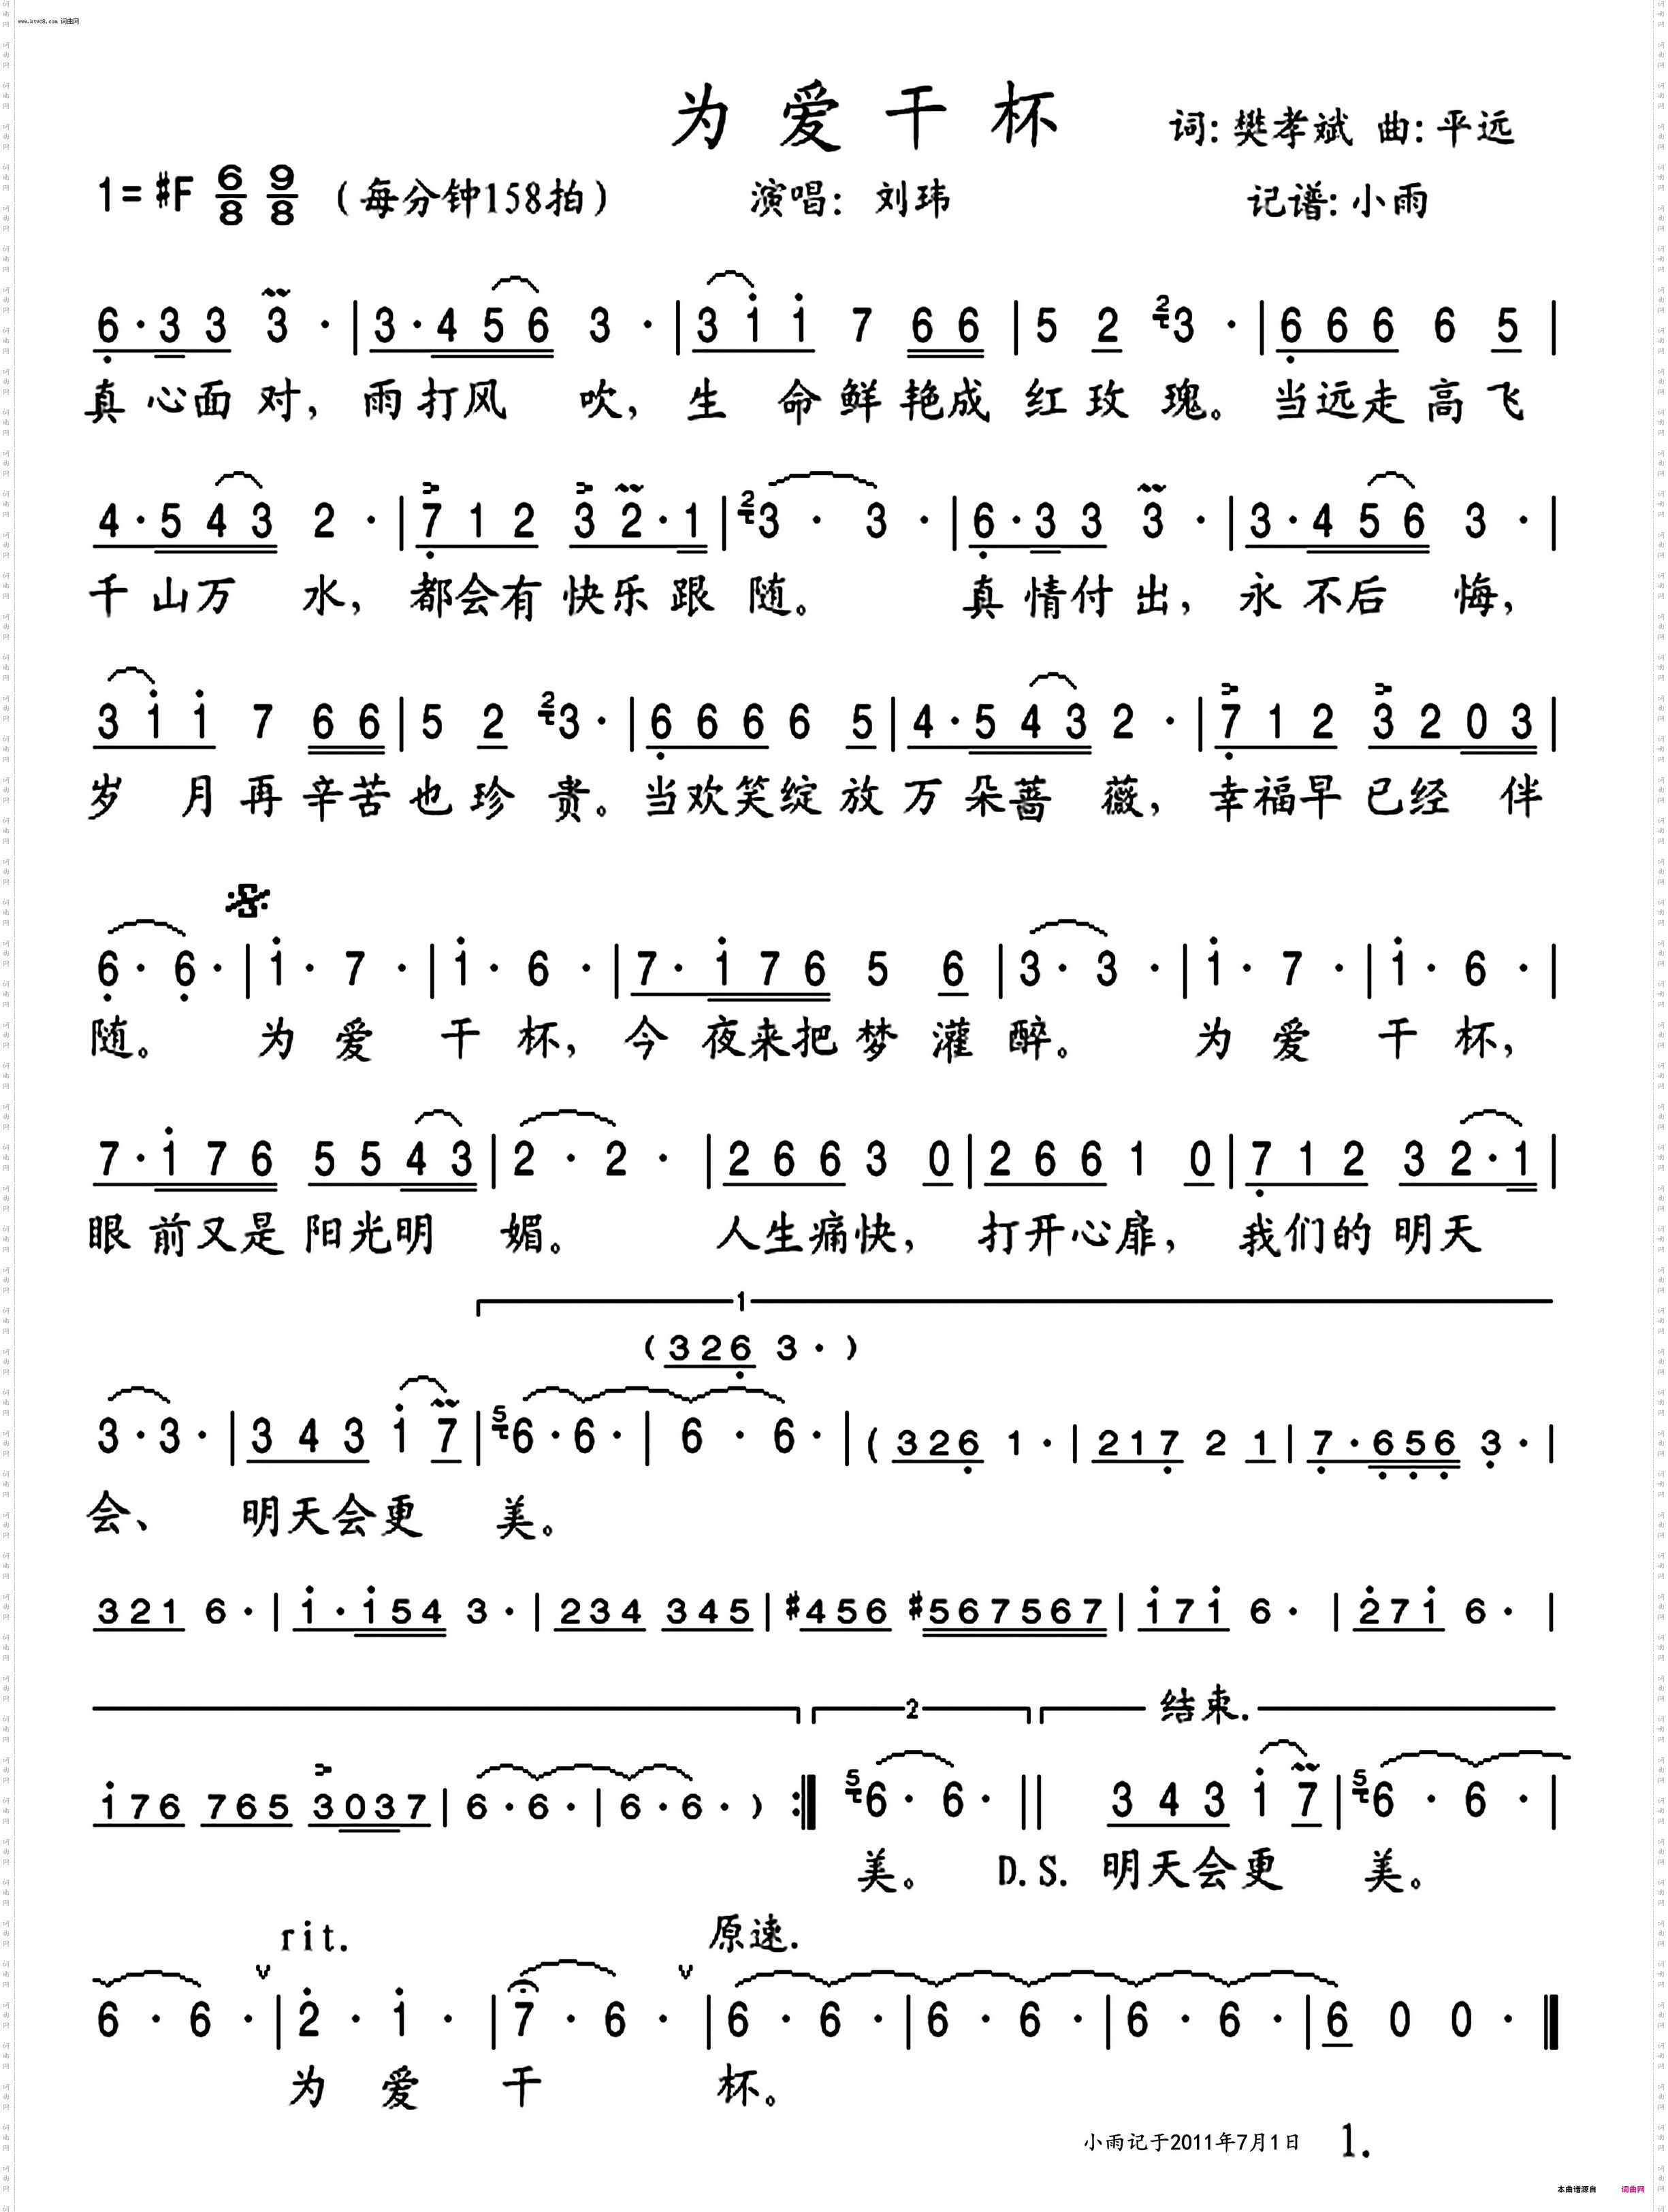 www.ktvc8.com 词曲网
为爱干杯
词:樊孝斌 曲:平远
1=#F 6/8 9/8 (每分钟158拍) 演唱: 刘玮 记谱:小雨
6·33 3·|3·456 3·|3ii 7 66|5 2 3·|666 6 5|
真心面对,雨打风吹,生命鲜艳成红玫瑰。当远走高飞
4·543 2·|712 32·1|3·3·|6·33 3·|3·456 3·|
千山万水,都会有快乐跟随。真情付出,永不后悔,
3ii 7 66|5 2 3·|666 6 5|4·543 2·|712 3203|
岁月再辛苦也珍贵。当欢笑绽放万朵蔷薇,幸福早已经伴
6·6·|i·7·|i·6·|7·i76 5 6|3·3·|i·7·|i·6·|
随。为爱干杯,今夜来把梦灌醉。为爱干杯,
7·i76 5543|2·2·|266 3 0|266 1 0|712 32·1|
眼前又是阳光明媚。人生痛快,打开心扉,我们的明天
1
(326 3·)
3·3·|343 i 7|6·6·|6·6·|(326 1·|217 2 1|7·656 3·|
会、明天会更美。
321 6·|i·i54 3·|234 345|#456 #567567|i7i 6·|27i 6·|
2 结束.
i76 765 3037|6·6·|6·6·):‖ 6·6·‖ 343 i 7|6·6·|
美。 D.S. 明天会更美。
rit. 原速.
6·6·|2·i·|7·6·|6·6·|6·6·|6·6·|6 0 0·‖
为爱干杯。
小雨记于2011年7月1日 1.
本曲谱源自 词曲网